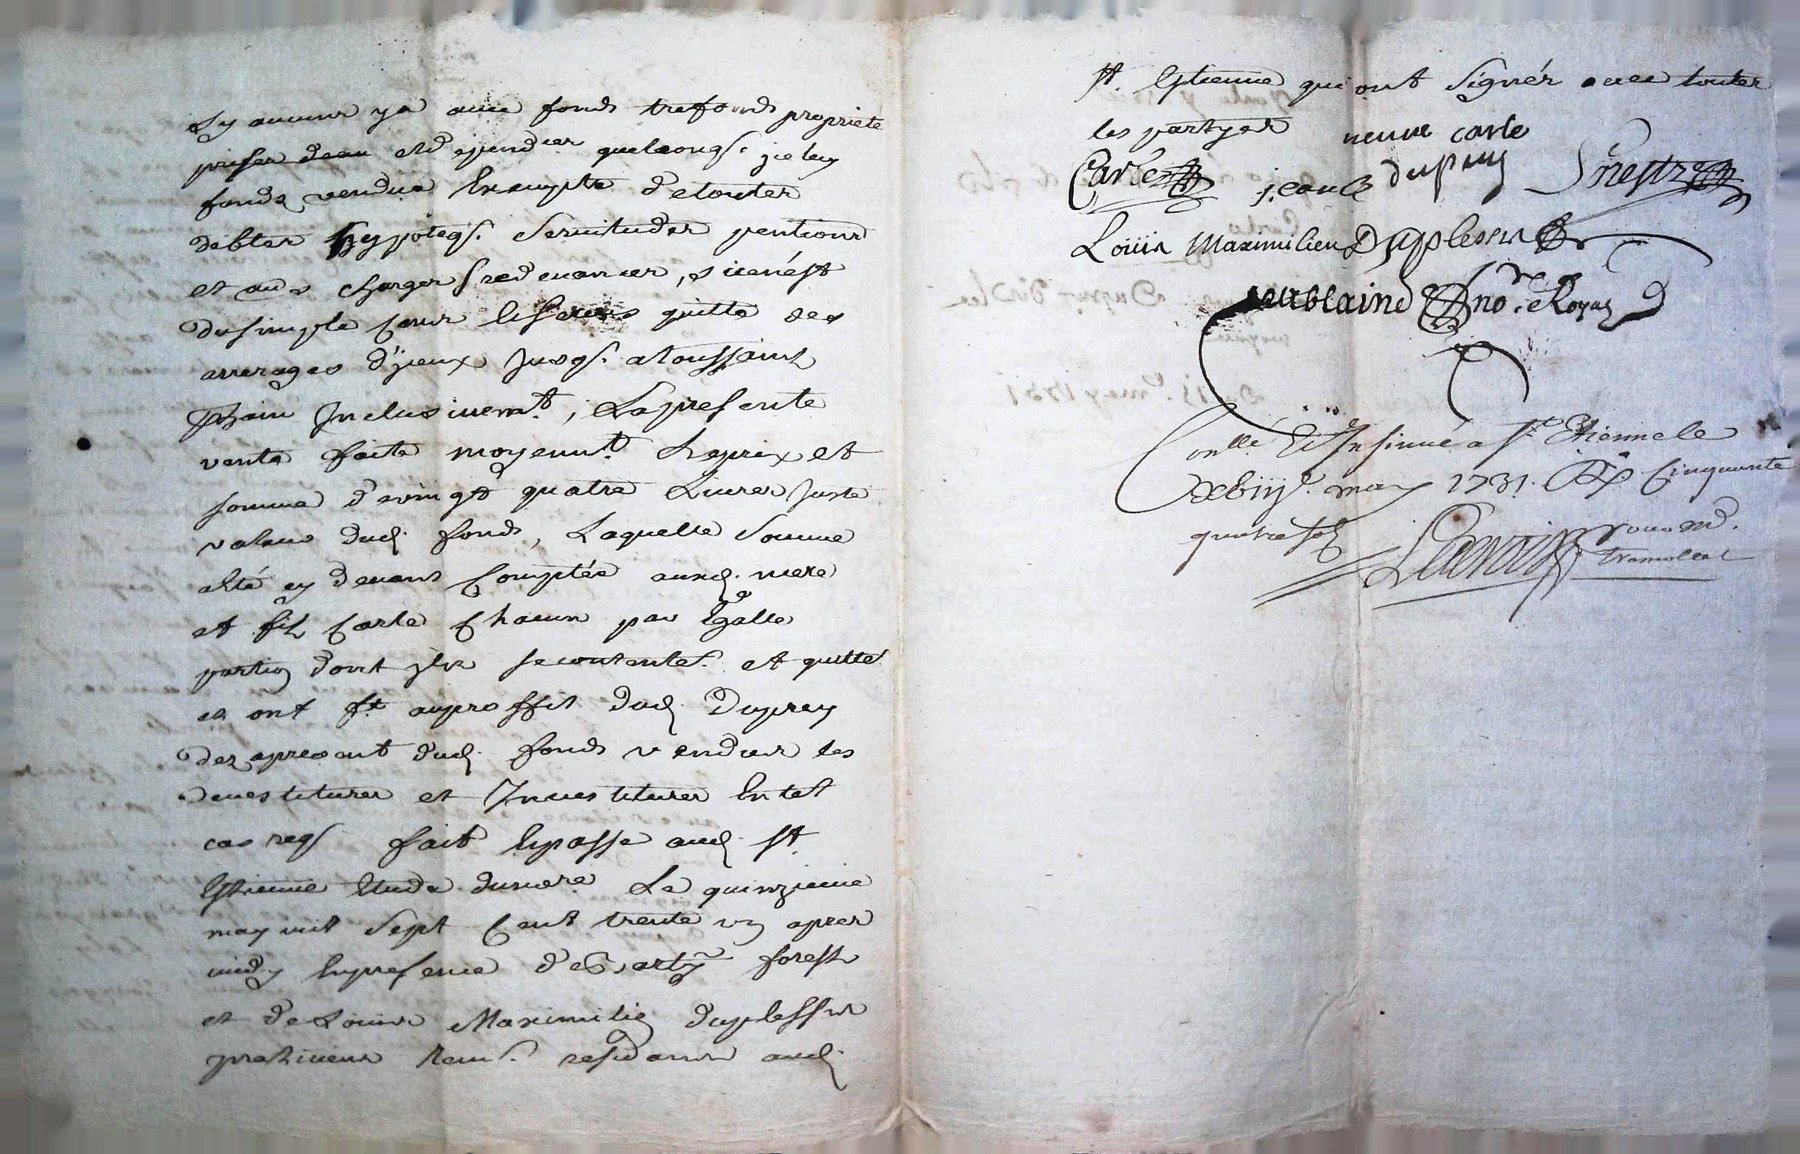 sy aucuns y a avec fonds trefonds propriete
prises deau et dependces quelcongs. jceluy
fonds vendus Exempte detoutes
debtes hypotegs. servitudes pentions
et aus charges redevances, si cenest
dusimple cens liserois quitte des
arrerages dyceux jusqs. atoussaint
pchain Inclusivemt. , Lapresente
vente faite moyennt. Leprix et
somme devingt quatre Livres juste
valeur dud. fonds, Laquelle somme
aété cy devant comptée auxd. mere
et filz carle chacun par Egalle
portion dont ils secontentet. et quitte
es ont ft. auproffit dud. Dupuy
dez apresent dud. fonds vendus les
devestitures et Investitures En tel
cas reqs. fait Epasse aud. St.
Estienne Etude dunore. Le quinzieme
may mil sept cent trente un apres
midy Enpresence de forest
et deLouis Maximilien duplessis
praticiens residants aud.
St. Estienne qui ont signés avec toutes
les partyes neuve carle
Carle jean dupuy
Louis Maximilien Duplessis
nore. Royal
Conllé. Et Insinué a St. Etienne le
may 1731. Cinquante
quatre sols